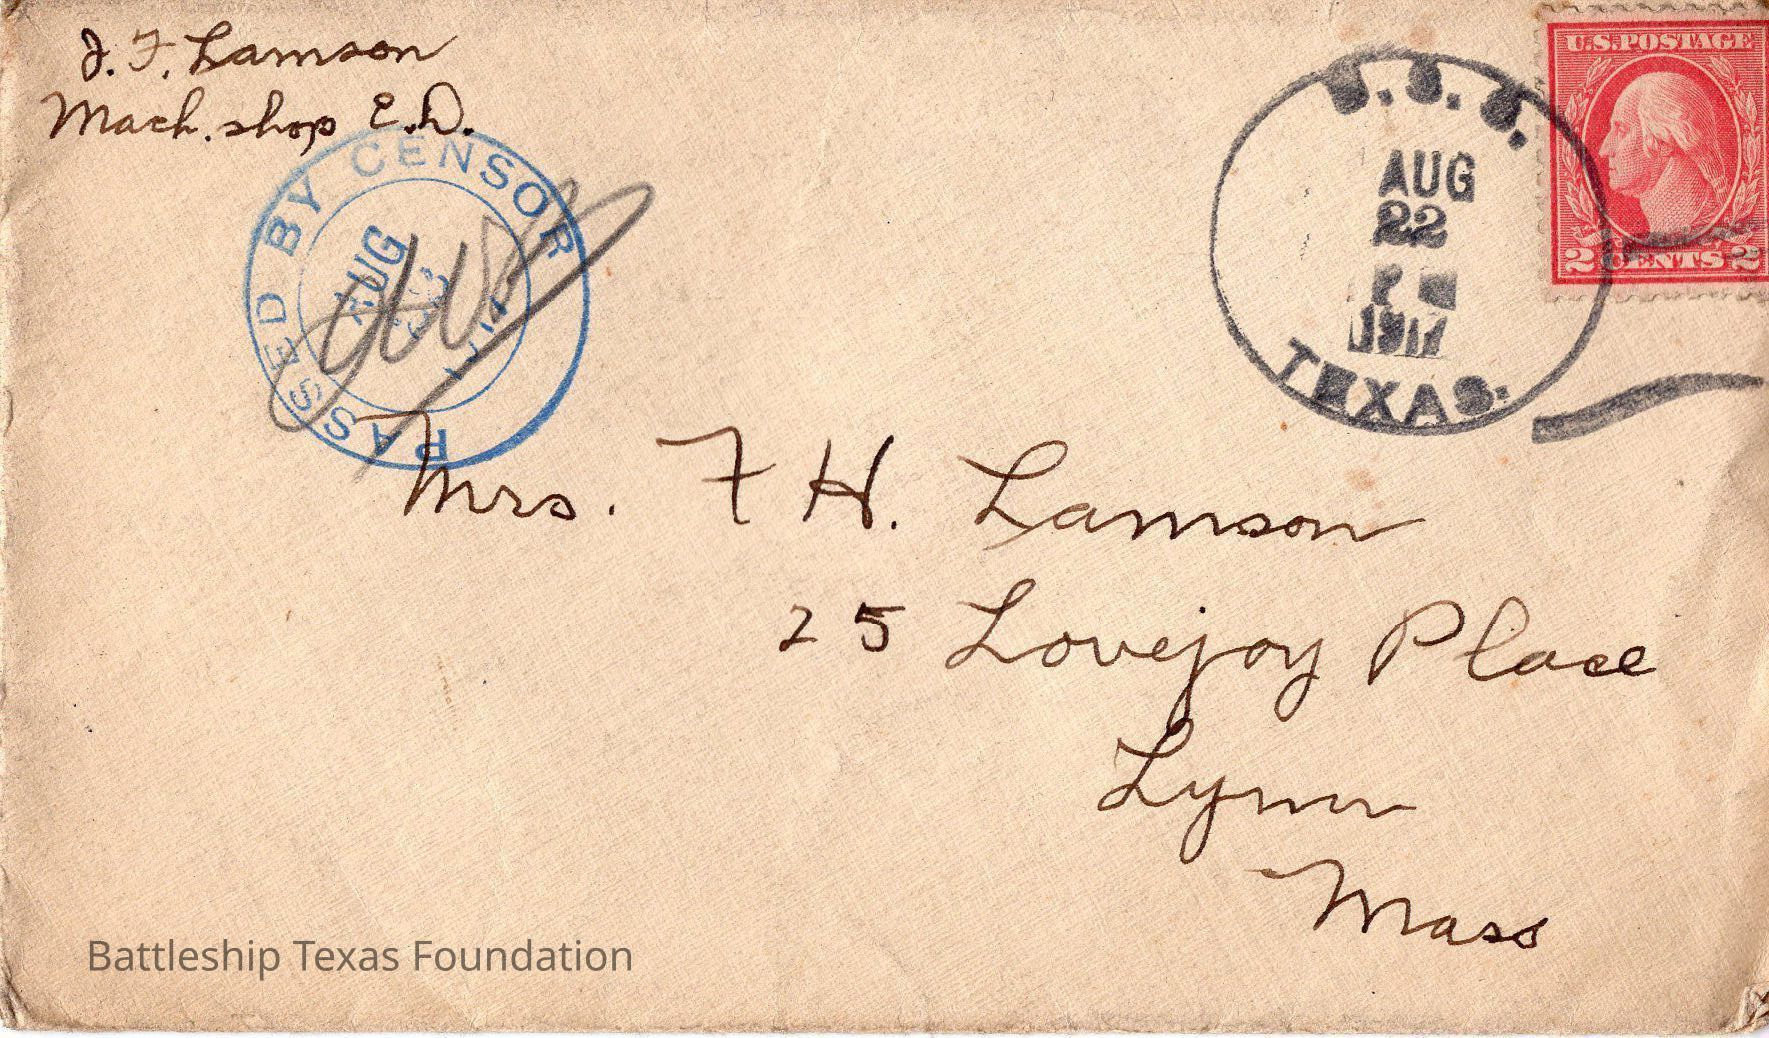 J. F. Lamson
Mach. shop E.D.
PASSED BY CENSOR
AUG
U.S.S.
AUG
22
P M
1917
TEXAS.
U.S. POSTAGE
2 CENTS 2
Mrs. F H. Lamson
25 Lovejoy Place
Lynn
Mass
Battleship Texas Foundation